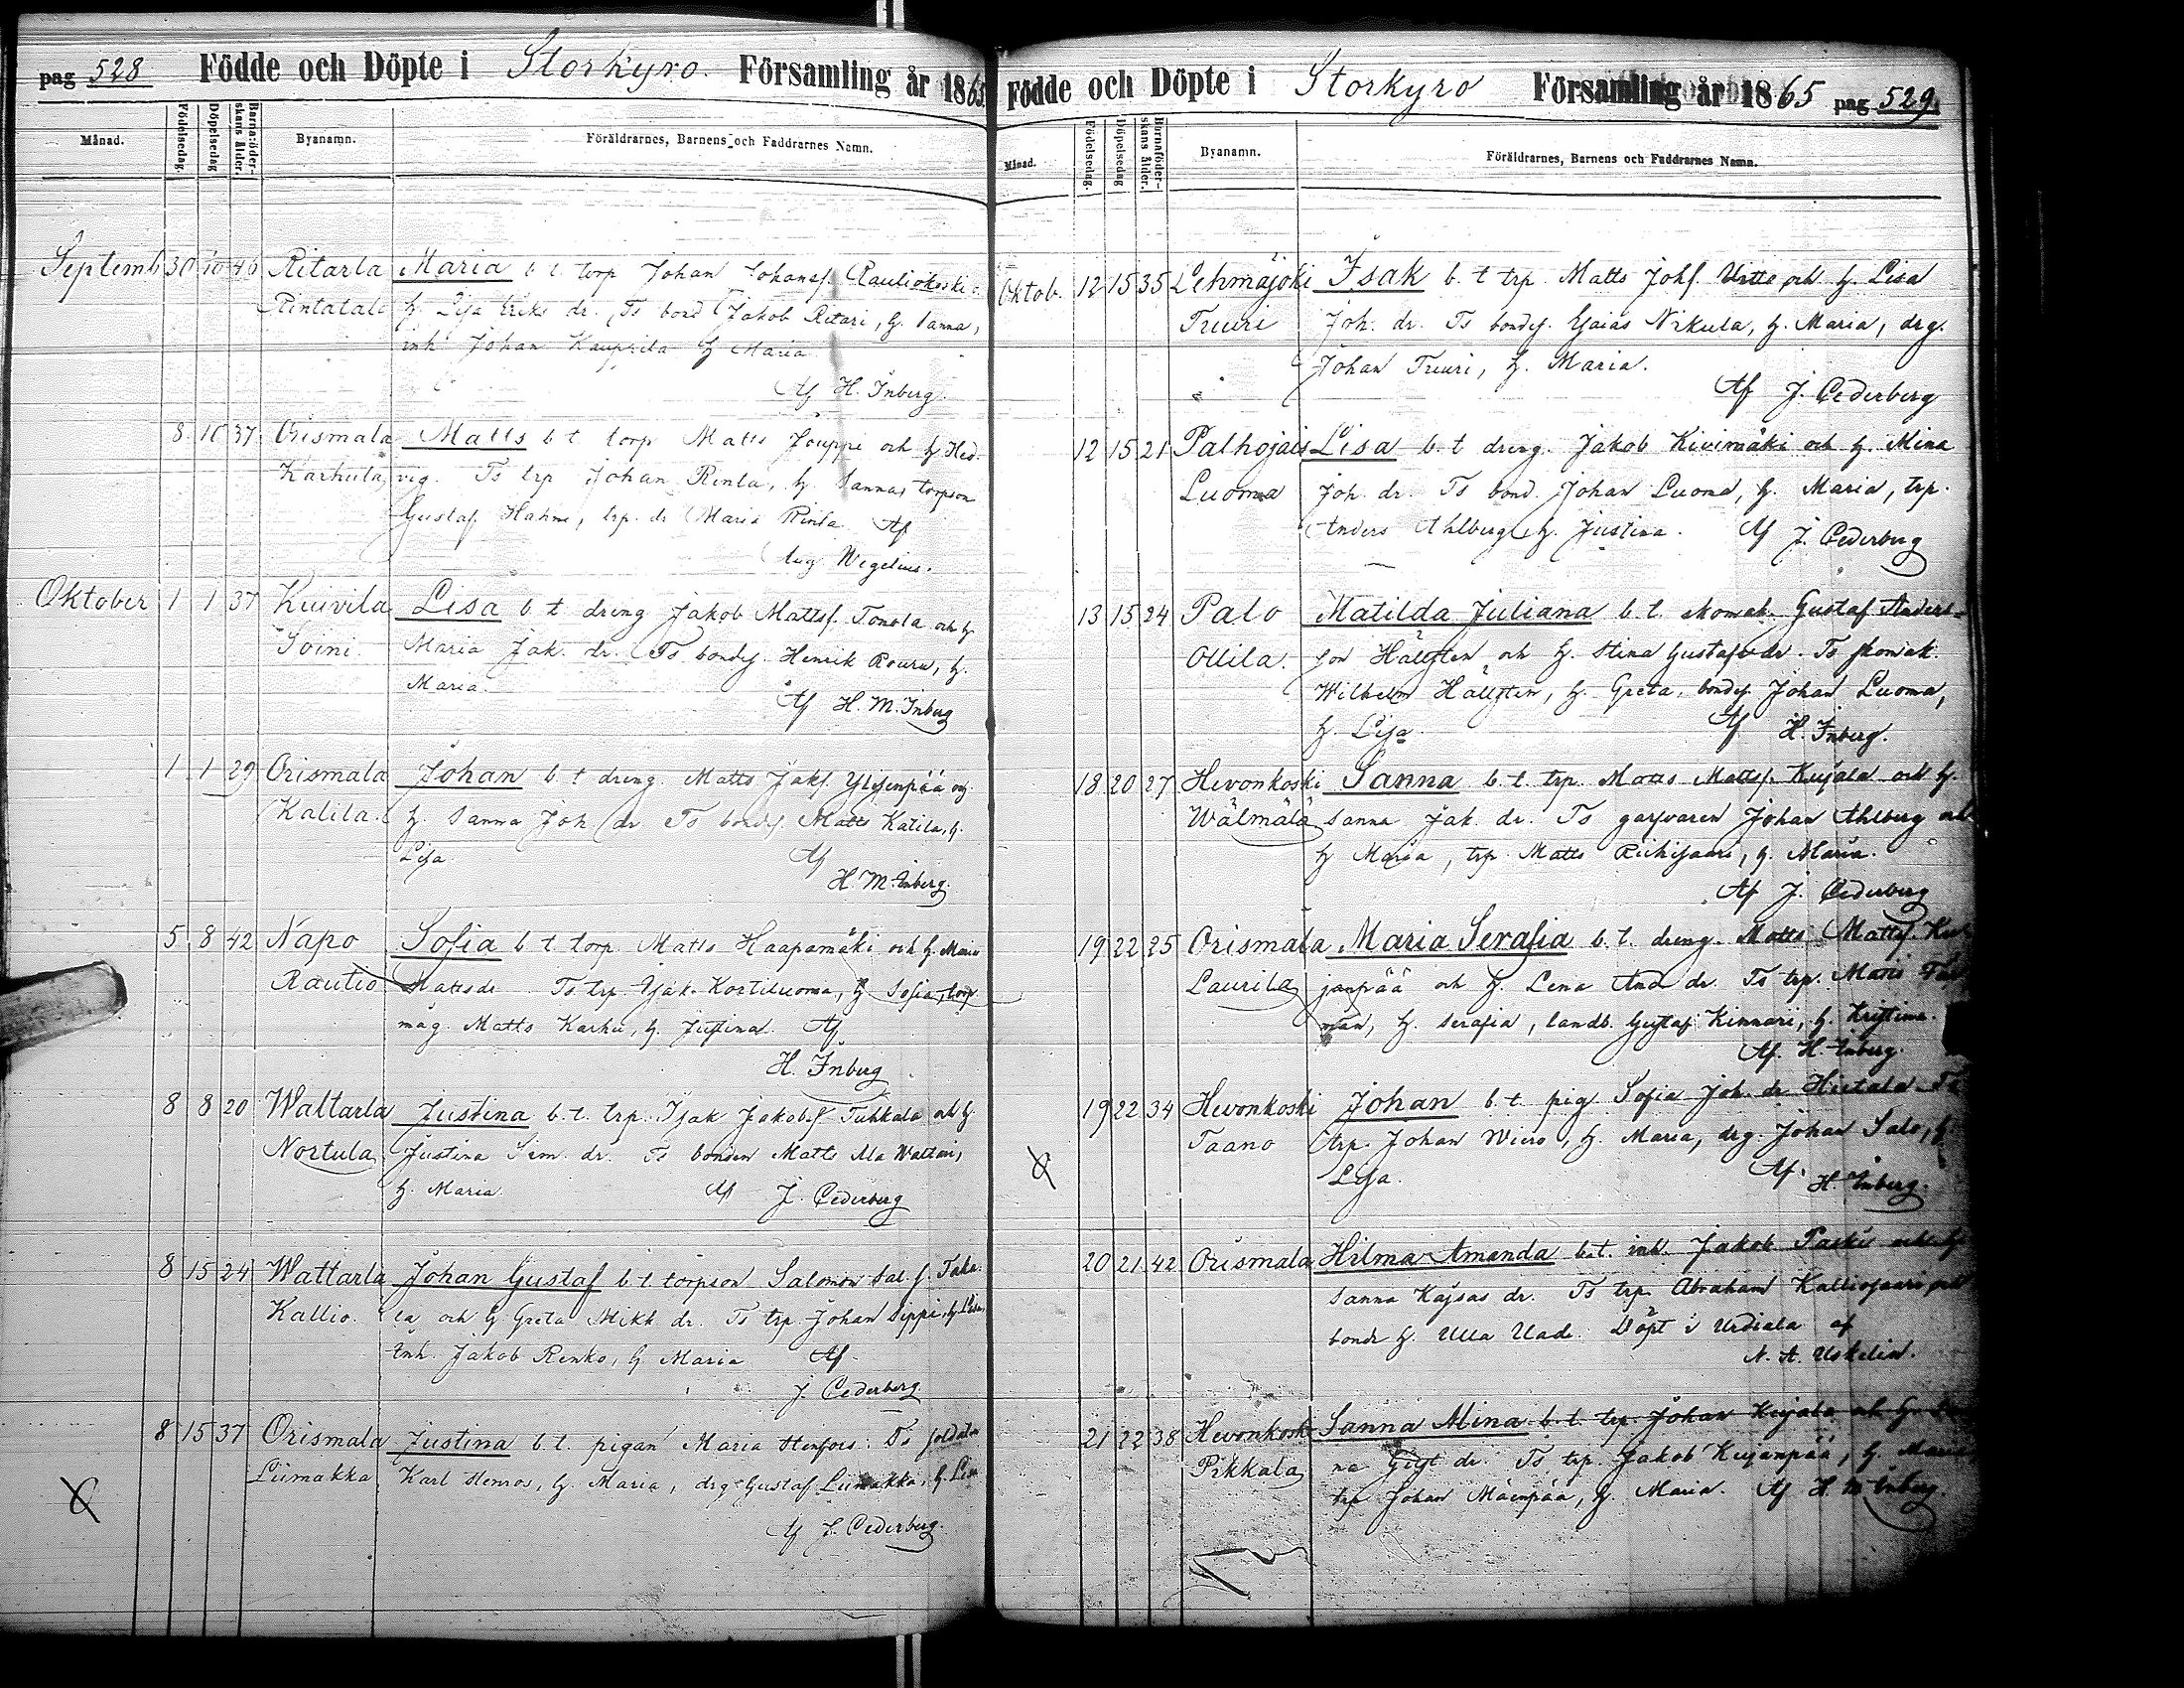 pag 528 Födde och Döpte i Storkyro. Församling år 1865
Månad. Födelsedag Döpelsedag Barnaföder-skans ålder Byanamn. Föräldrarnes, Barnens och Faddrarnes Namn.
Septemb 30 10 46 Ritarla Maria b. t. torp Johan Johans. Rauliokoski
Rintatalo h. Lisa Eriks dr. Ts bond Jakob Ritari, h. Sanna,
inh Johan Kauppila h Maria
Af H. Inberg.
8 10 37 Orismala Matts b t torp Matts Jouppi och h Hed-
Karhula vig. Ts trp Johan Rinta, h. Sanna, torpson
Gustaf Hahne, trp. dr Maria Rinta Af
Aug Wegelius.
Oktober 1 1 37 Kuivila Lisa b t dreng Jakob Mattss. Tonola och h
Soini. Maria Jak. dr. Ts bondes. Henrik Roure, h.
Maria. Af H. M. Inberg
1 1 29 Orismala Johan b. t dreng. Matts Jaks. Ylisenpää och
Kalila. h. Sanna Joh dr Ts bondes. Matts Kalila, h.
Lisa. Af
H. M. Inberg.
5 8 42 Napo Sofia b t torp. Matts Haapamäki och h. Maria
Rautio Mattsdr Ts trp. Jak. Kortiluoma, h Sofia, torp
måg. Matts Karhu, h. Justina. Af
H. Inberg
8 8 20 Waltarla Justina b. t. trp. Isak Jakobs. Tuhkala och h
Nortula Justina Sim. dr. Ts bonden Matts Ala Waltari,
h. Maria. Af J. Cederberg
8 15 24 Wattarla Johan Gustaf b t torpson Salomon Sal. s. Taka-
Kallio. la och h Greta Mikk dr. Ts trp. Johan Sippi, h. Lisa,
inh. Jakob Renko, h Maria Af
J. Cederberg
8 15 37 Orismala Justina b t. pigan Maria Stenfors. Ts soldaten
Liimakka Karl Stenros, h. Maria, drg Gustaf Liimakka, h Lisa
Af J. Cederberg.
Födde och Döpte i Storkyro Församling år 1865 pag 529.
Månad. Födelsedag. Döpelsedag Barnaföder-skans ålder. Byanamn. Föräldrarnes, Barnens och Faddrarnes Namn.
Oktob. 12 15 35 Lehmäjoki Isak b. t trp. Matts Johs. och h. Lisa
Truuri Joh. dr. Ts bondes. Esaias Nikula, h. Maria, drg.
Johan Truuri, h. Maria.
Af J. Cederberg
12 15 21 Palhojais Lisa b. t dreng. Jakob Kivimäki och h. Mina
Luoma Joh. dr. Ts bond. Johan Luoma, h. Maria, trp.
Anders Ahlberg h. Justina. Af J. Cederberg
13 15 24 Palo Matilda Juliana b. t. skomak. Gustaf Anders-
Ollila. son Hällsten och h. Stina Gustafsdr. Ts skomak.
Wilhelm Hällsten, h. Greta, bondes. Johan Luoma,
h. Lisa. Af H. Inberg.
18 20 27 Hevonkoski Sanna b. t. trp. Matts Mattss. Kujala och h.
Wälmälä Sanna Jak. dr. Ts garfvaren Johan Ahlberg och
h Maria, trp. Matts Riihisaari, h. Maria.
Af J. Cederberg
19 22 25 Orismala Maria Serafia b. t. dreng. Matts Mattss. Ku-
Laurila janpää och h. Lena And dr. Ts trp. Matts
man, h. Serafia, landb. Gustaf Kinnari, h. Kristina.
Af. H. Inberg.
19 22 34 Hevonkoski Johan b. t. pig Sofia Joh. dr Hietala Ts
Taano trp. Johan Wiero, h. Maria, drg. Johan Salo, h
Lisa. Af. H. Inberg.
20 21 42 Orismala Hilma Amanda b. t. inh. Jakob Paski och h
Sanna Kajsas dr. Ts trp. Abraham Kalliosaari, och
bonde h. Ulla Uad. Döpt i Urdiala af
N. A. Uskelin.
21 22 38 Hevonkoski Sanna Mina b. t. trp. Johan Kujala och h.
Pikkala na Gust dr. Ts trp. Jakob Kujanpää, h. Maria
trp Johan Mäenpää, h. Maria. Af H. M Inberg.